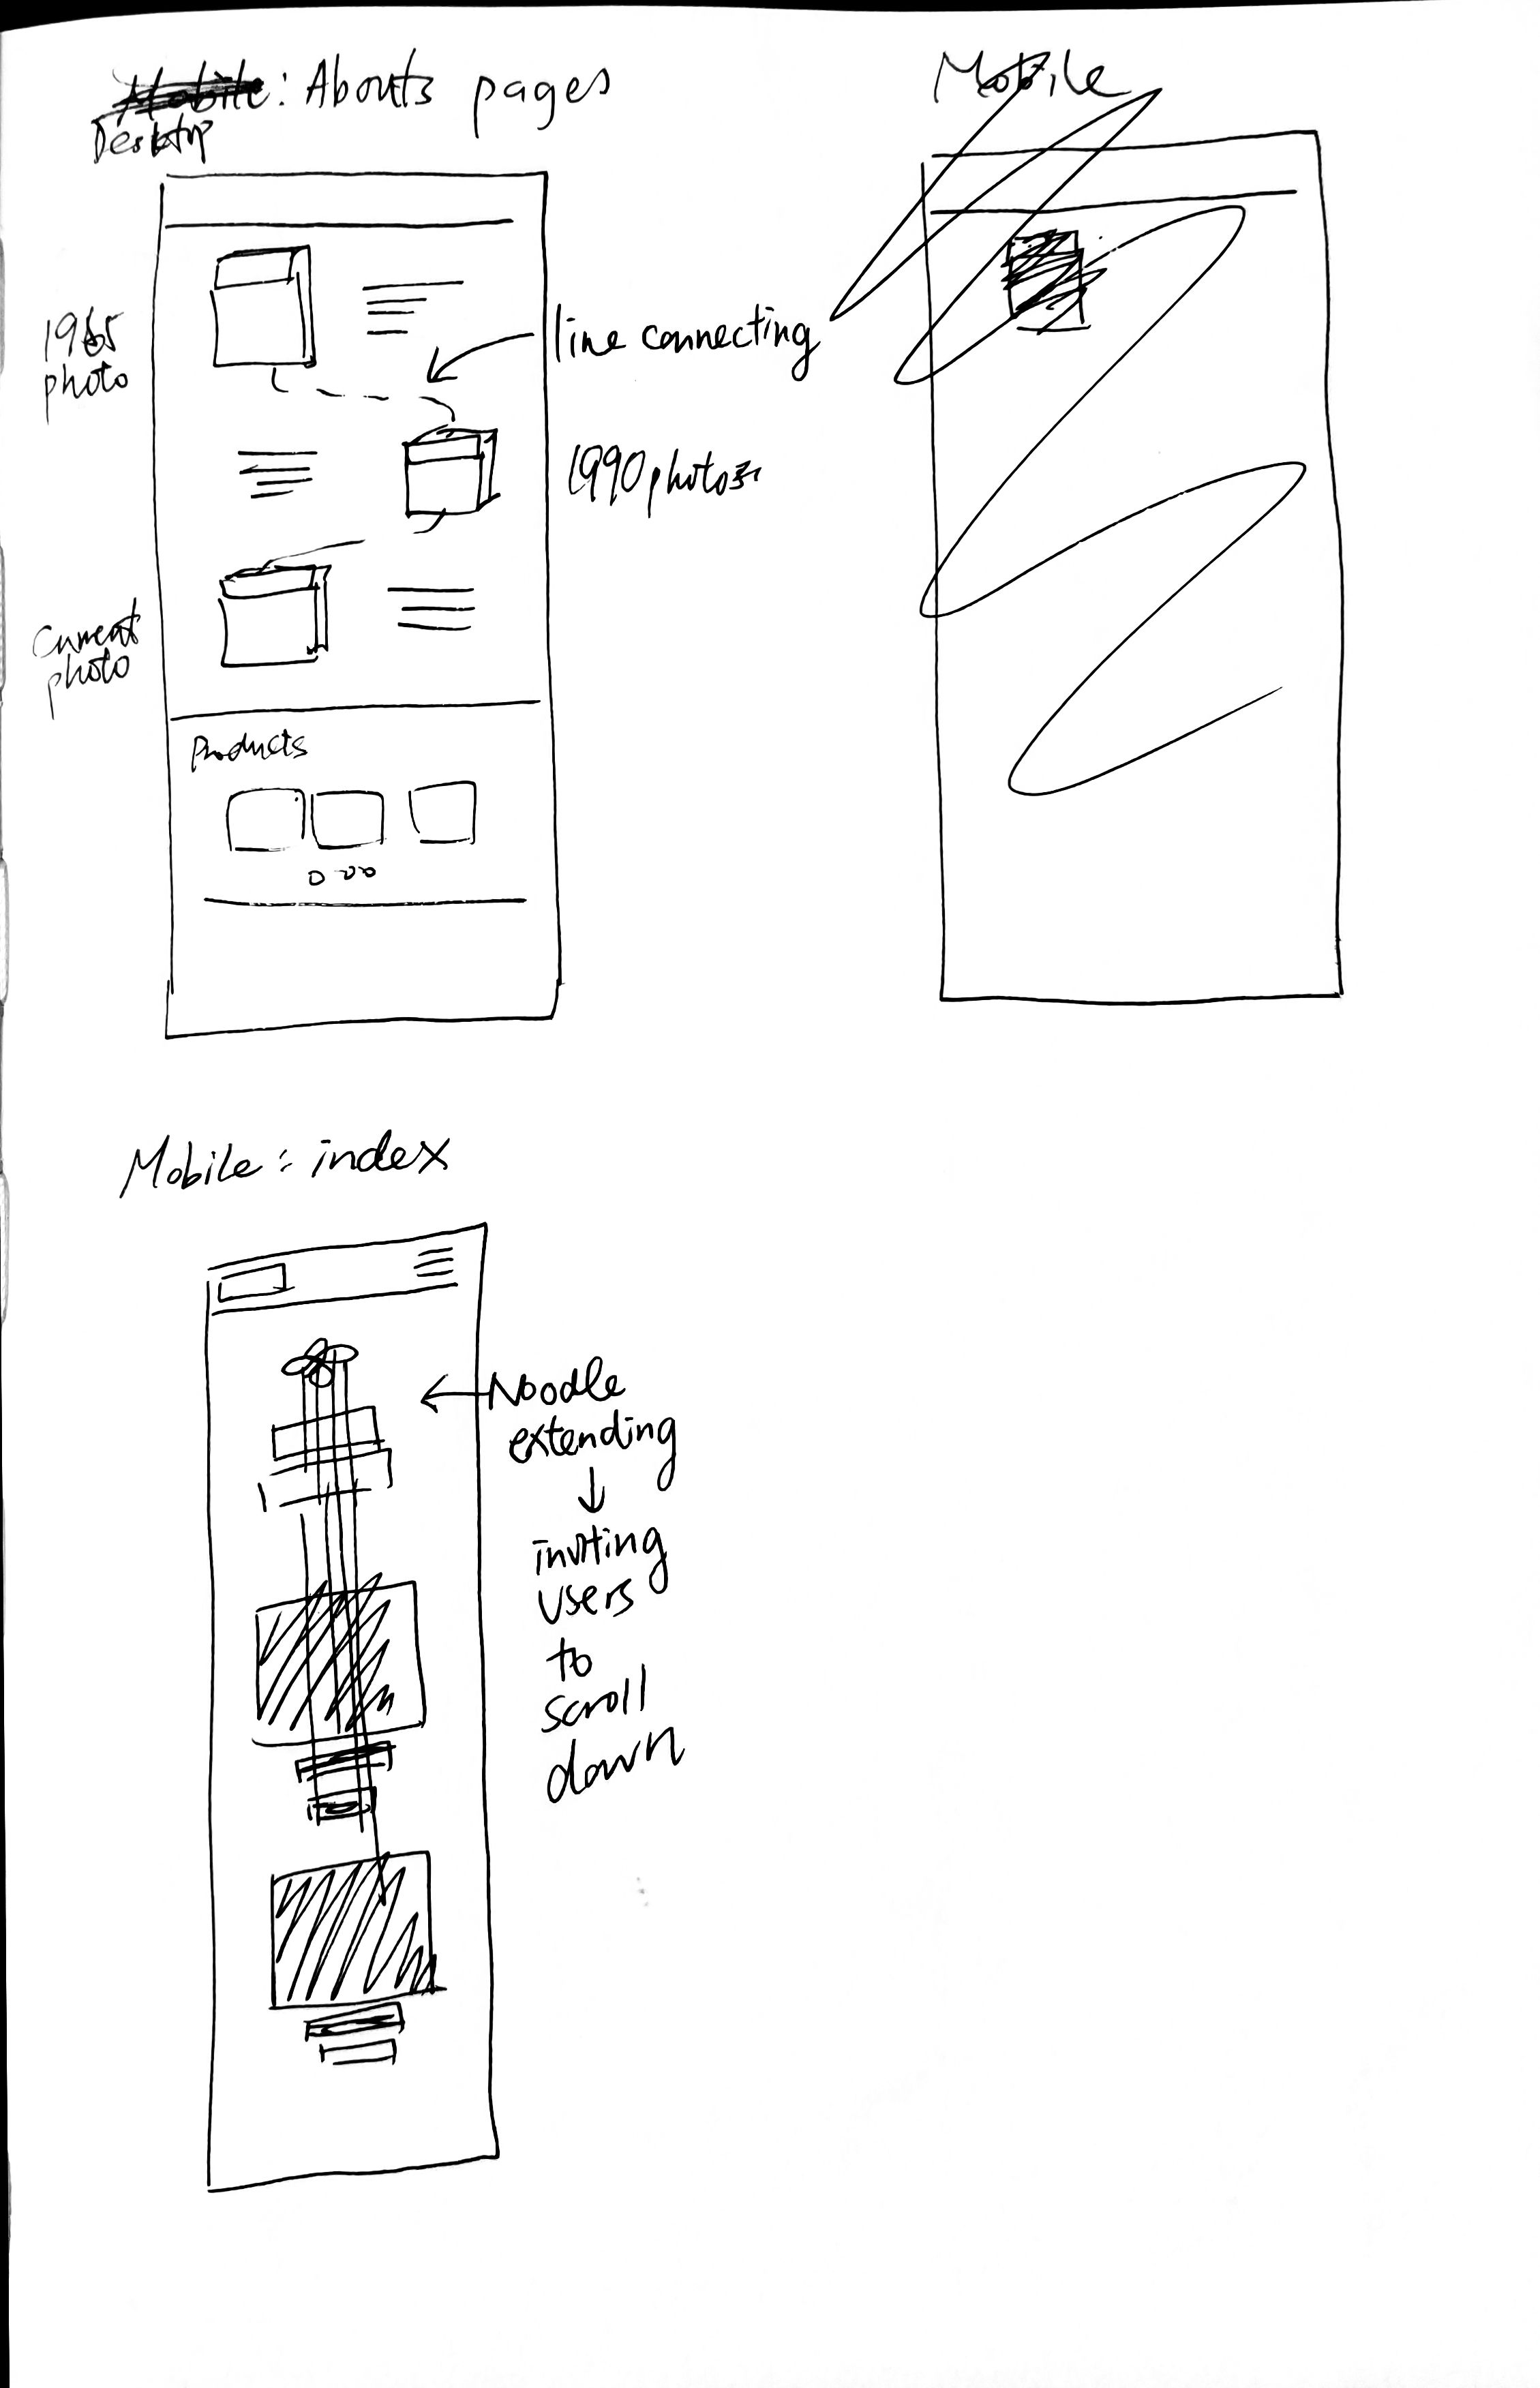 Mobile: Abouts pages
Desktop
Mobile
1965
photo
line connecting
1990 photo
Current
photo
Products
Mobile: index
Noodle
extending
↓
inviting
users
to
scroll
down